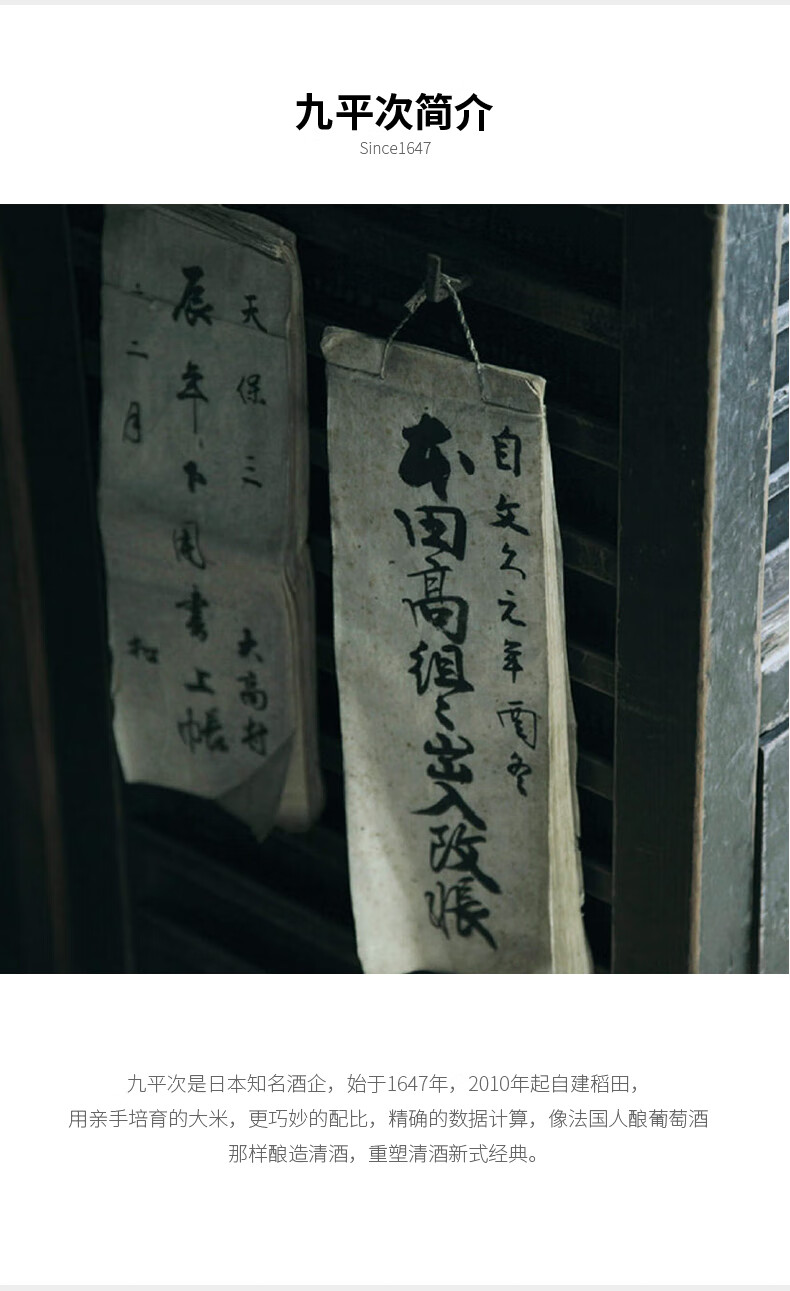 九平次简介
Since1647
天保三
大高村
辰年
書上帳
二月
自文久元年
本田高組々出入改帳
九平次是日本知名酒企，始于1647年，2010年起自建稻田，
用亲手培育的大米，更巧妙的配比，精确的数据计算，像法国人酿葡萄酒
那样酿造清酒，重塑清酒新式经典。